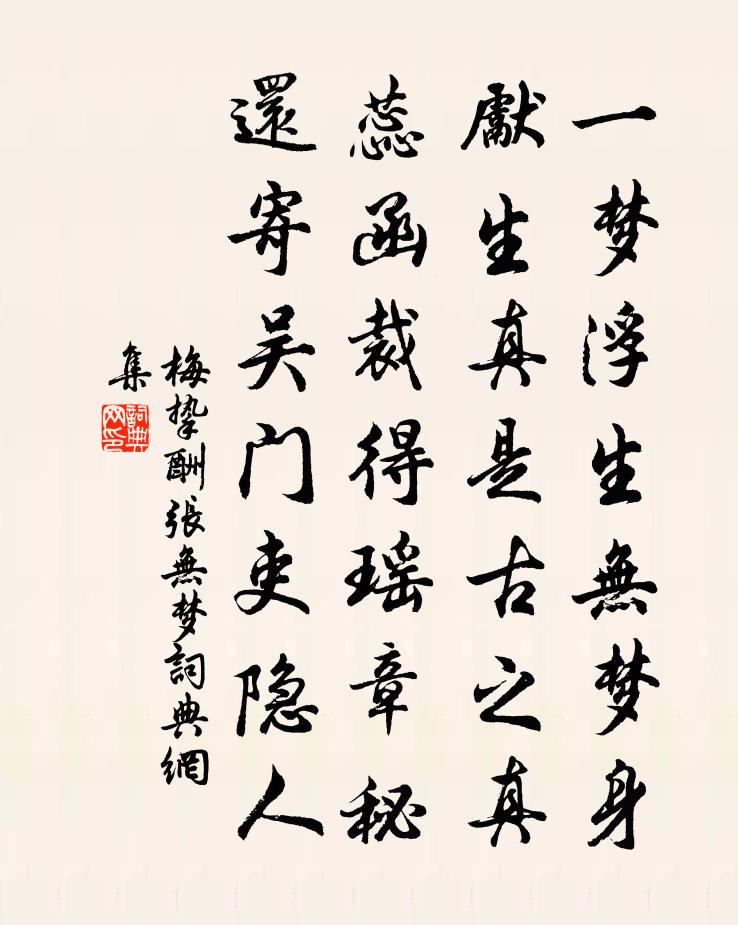 一梦浮生無梦身
獻生真是古之真
蕊函裁得瑶章秘
還寄吴门吏隐人
梅挚酬張無梦詞典網
集
詞典网印